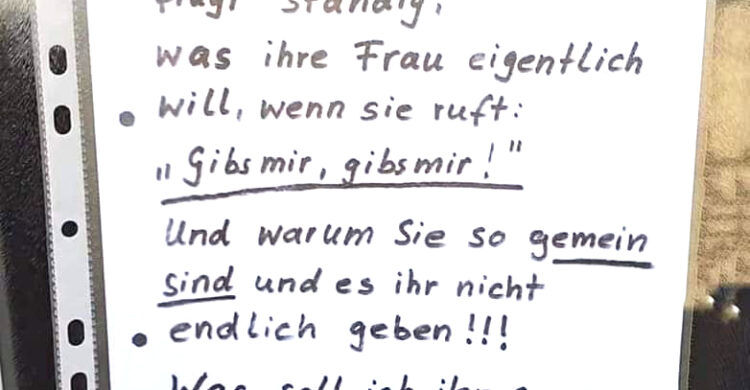 fragt ständig,
was ihre Frau eigentlich
will, wenn sie ruft:
„Gibs mir, gibs mir!"
Und warum Sie so gemein
sind und es ihr nicht
endlich geben!!!
Was soll ich ihm